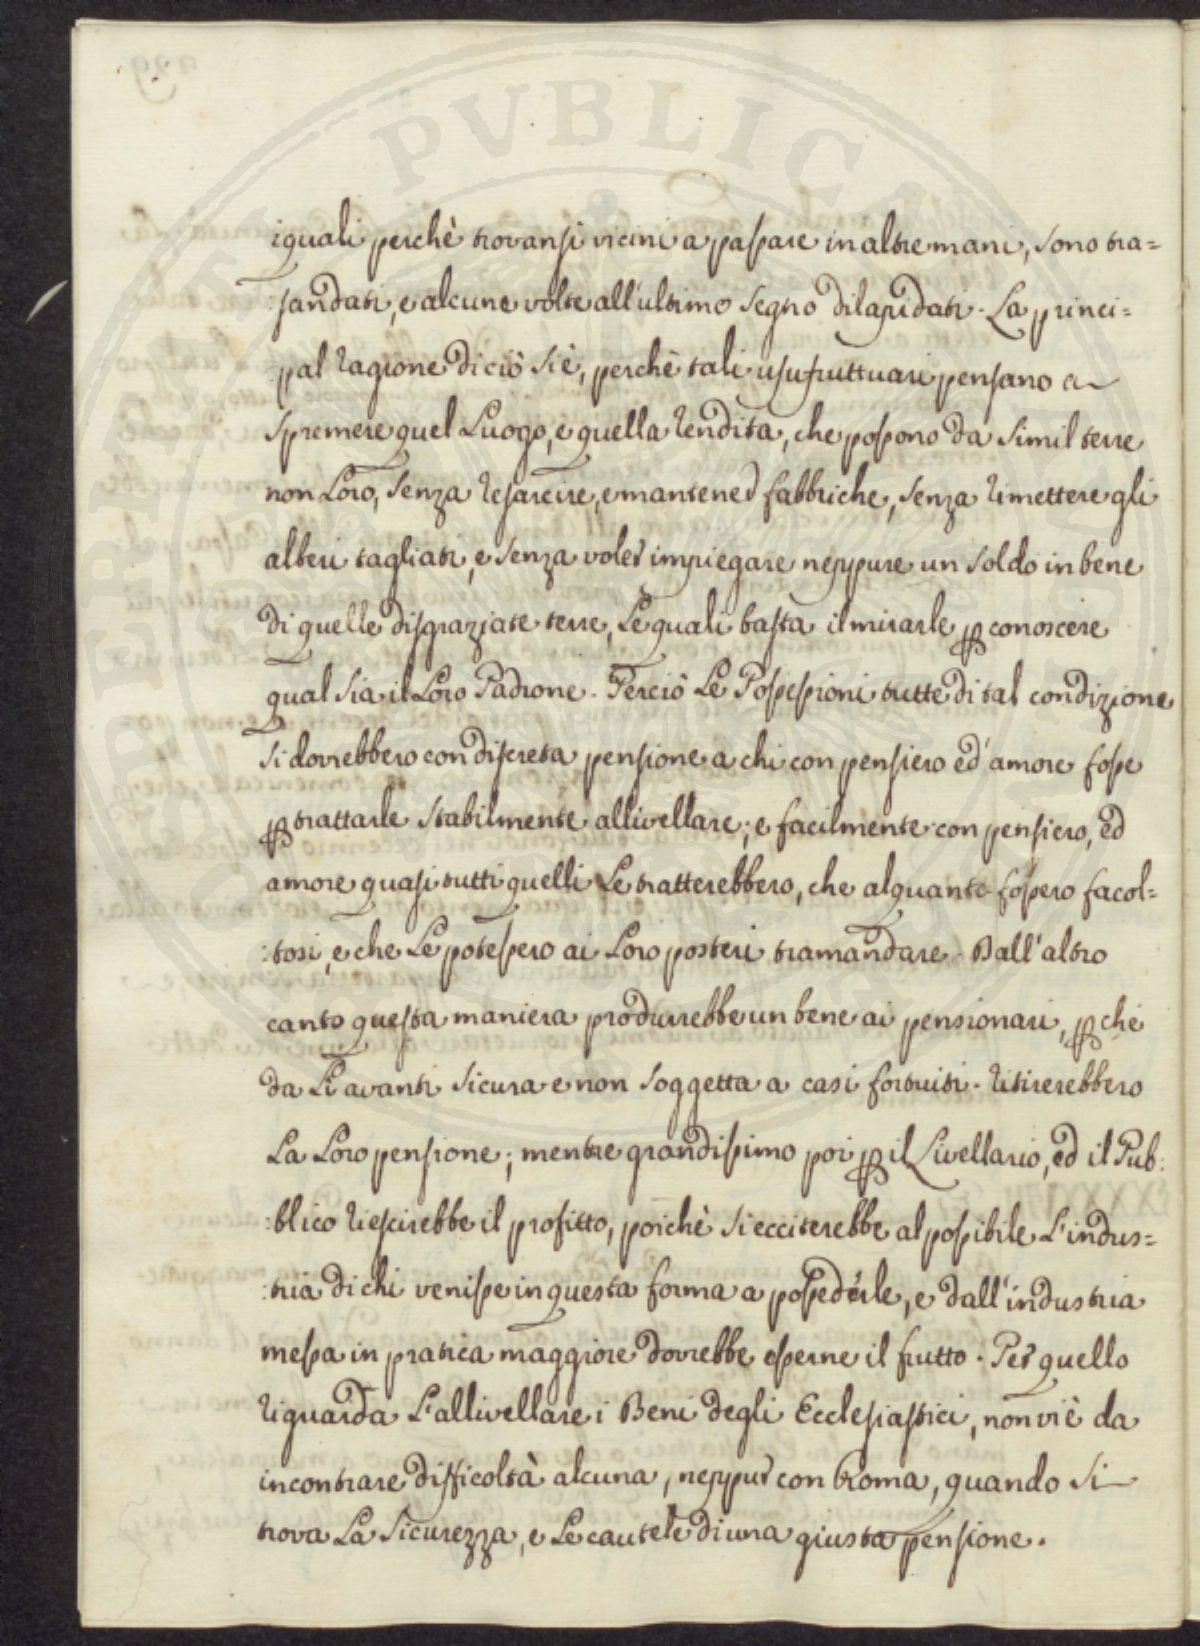 PVBLICA
APERIENTI
iquali perchè trovansi vicini a passare in altre mani, sono tra=
:sandati, e alcune volte all'ultimo segno dilapidati. La princi=
pal ragione di ciò si è, perchè tali usufruttuari pensano a
spremere quel Luogo, e quella rendita, che possono da simil terre
non Loro, senza resarcire, e mantener fabbriche, senza rimettere gli
alberi tagliati, e senza voler impiegare neppure un soldo in bene
di quelle disgraziate terre, Le quali basta il mirarle p conoscere
qual sia il Loro Padrone. Perciò Le Possessioni tutte di tal condizione
si dovrebbero con discreta pensione a chi con pensiero ed amore fosse
p trattarle stabilmente allivellare; e facilmente con pensiero, ed
amore quasi tutti quelli Le tratterebbero, che alquanto fossero facol=
:tosi, e che Le potessero ai Loro posteri tramandare. Dall'altro
canto questa maniera produrrebbe un bene ai pensionari, pchè
da Lì avanti sicura e non soggetta a casi fortuiti. ritirerebbero
La Loro pensione; mentre grandissimo poi p il Livellario, ed il Pub:
:blico riescirebbe il profitto, poichè si ecciterebbe al possibile L'indus=
:tria di chi venisse in questa forma a possederle, e dall'industria
messa in pratica maggiore dovrebbe esserne il frutto. Per quello
riguarda L'allivellare i Beni degli Ecclesiastici, non vi è da
incontrare difficoltà alcuna, neppur con Roma, quando si
trova La sicurezza, e Le cautele di una giusta pensione.